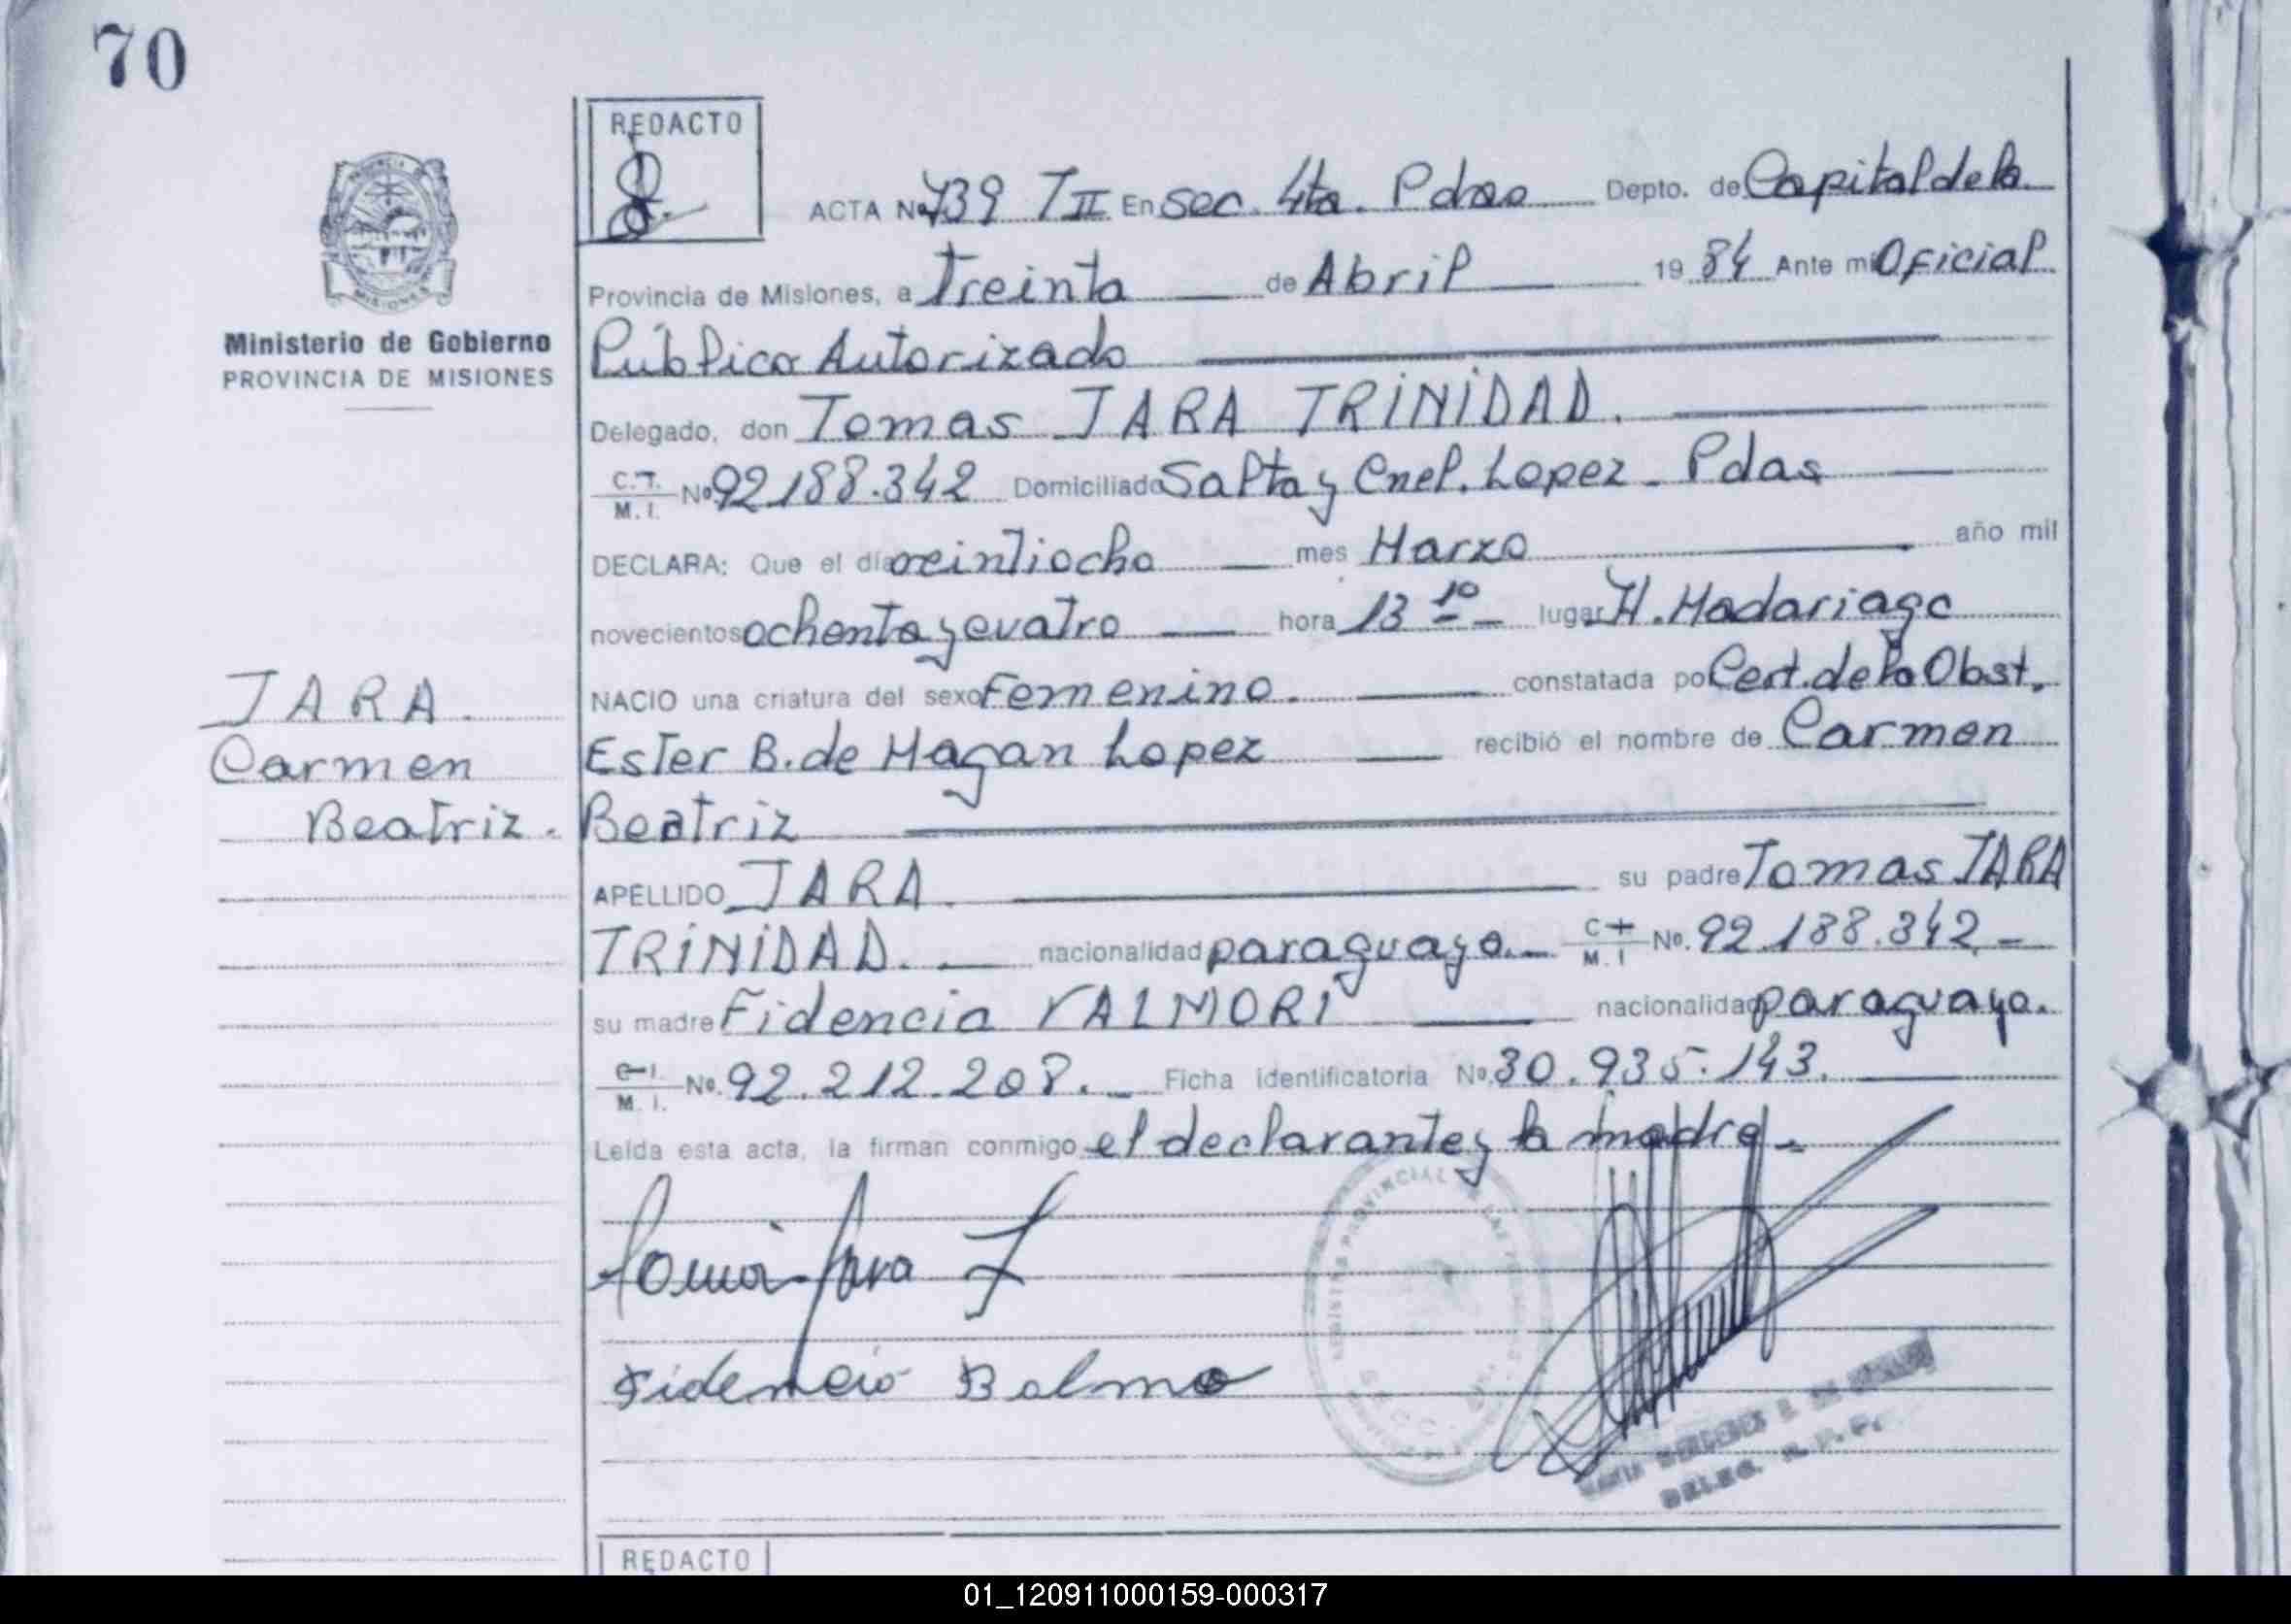 70
REDACTO
ACTA No 739 T II En Sec. 4ta. Pdas Depto. de Capital de la
Provincia de Misiones, a Treinta de Abril 19 84 Ante mi Oficial
Ministerio de Gobierno
PROVINCIA DE MISIONES
Público Autorizado
Delegado, don Tomas JARA TRINIDAD.
C.I. M.I. No 92.188.342 Domiciliado Salta y Cnel. Lopez - Pdas
DECLARA: Que el día veintiocho mes Marzo año mil
novecientos ochenta y cuatro hora 13 10 lugar H. Madariaga
JARA.
Carmen
Beatriz.
NACIO una criatura del sexo Femenino. constatada po Cert. de la Obst.
Ester B. de Magan Lopez recibió el nombre de Carmen
Beatriz
APELLIDO JARA. su padre Tomas JARA
TRINIDAD. nacionalidad paraguaya. C.I. M.I No. 92.188.342 -
su madre Fidencia VALMORI nacionalidad paraguaya.
C.I. M.I. No. 92.212.208. Ficha identificatoria No. 30.935.143.
Leída esta acta, la firman conmigo el declarante y la madre.
Fidencio Balmo
DELEG. R.P.P.
REDACTO
01_120911000159-000317